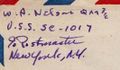 W. A. Nelson QM 3/c
U.S.S. SC-1017
℅ Postmaster
New York, N.Y.